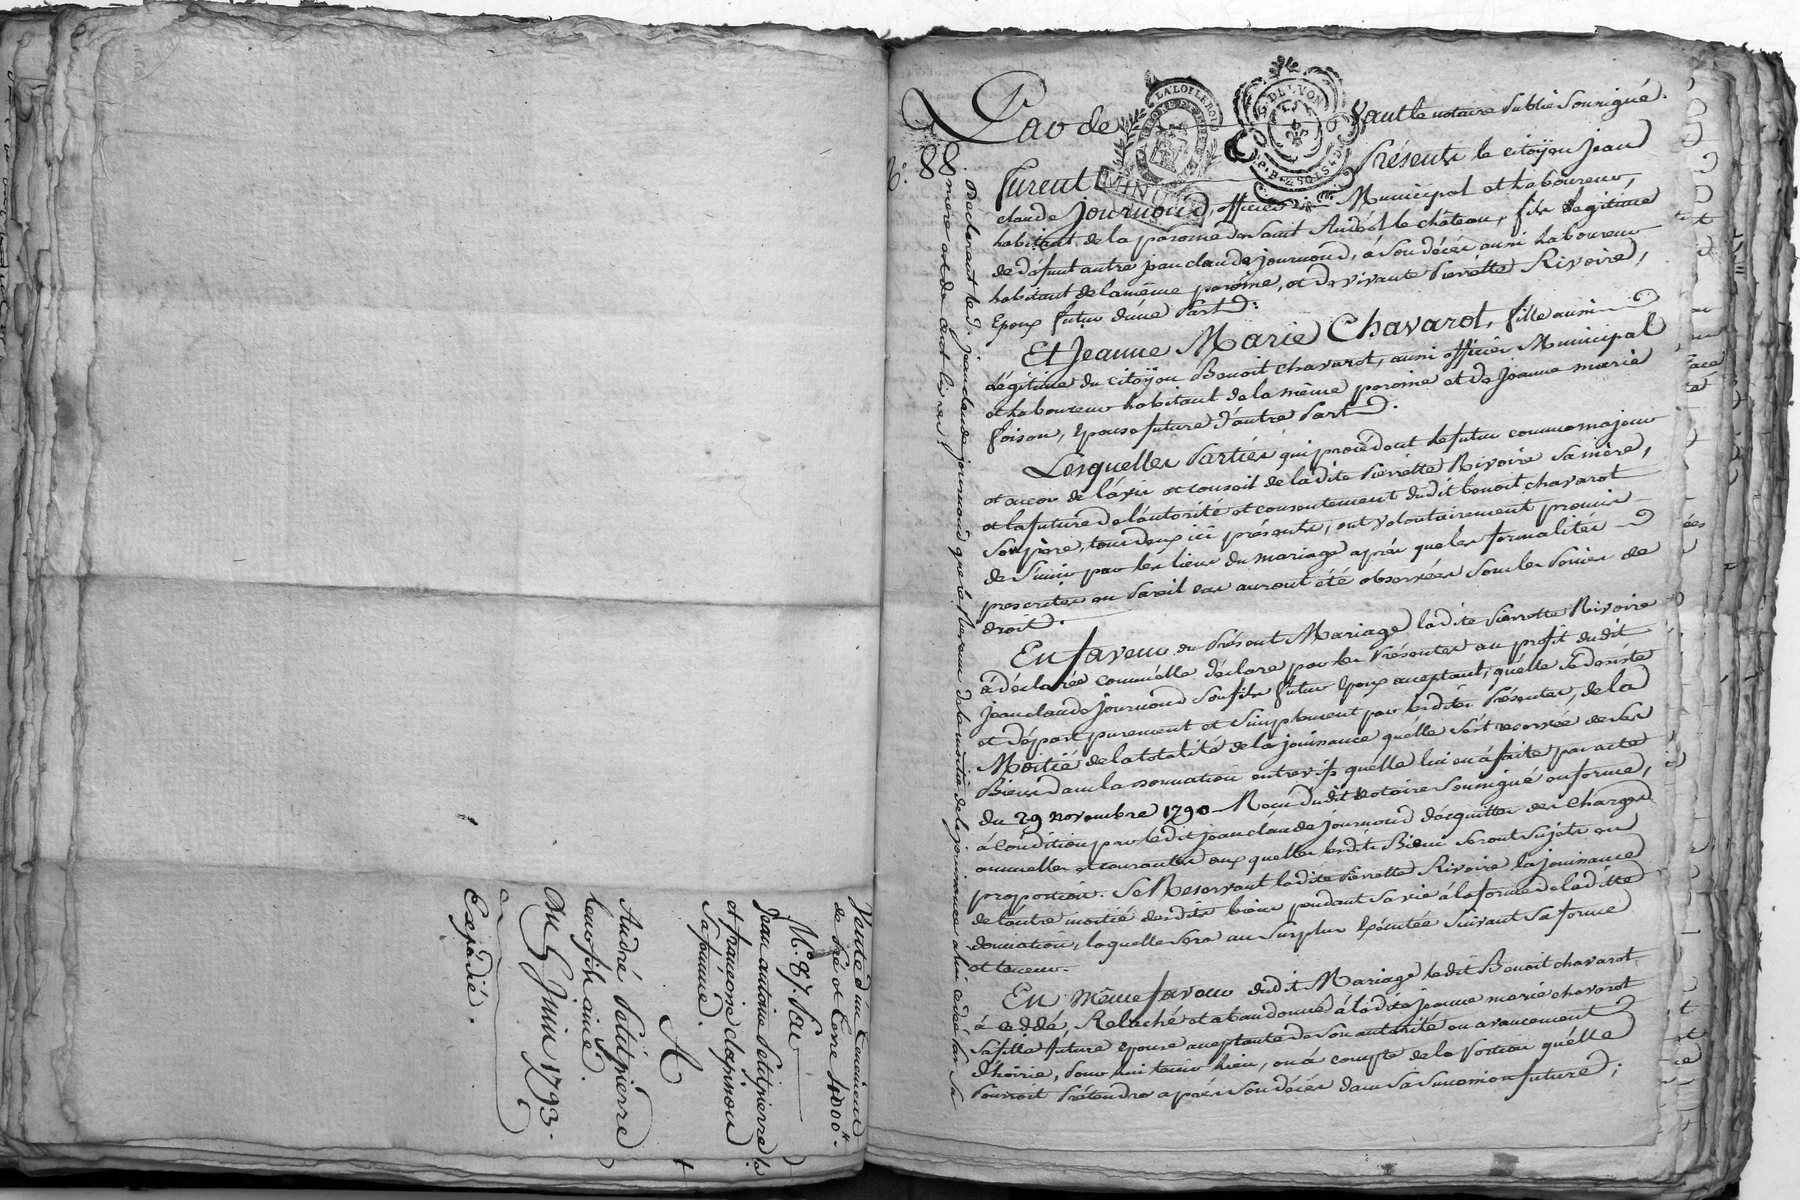 Vente d'un tenement
de pré et terre 4000 ₶.
N.º 87. Par
Jean antoine Petitpierre
et françoise clapisson
Sa femme.
A
André Petitpierre
leur fils ainé.
Du 5 Juin 1793.
Expédié.
N.º 88
Par de vant le notaire Public Soussigné.
LA LOI LE ROI
MINUTE
G. DE LYON
furent Présents le citoÿen Jean
claude journoud, officier Municipal et laboureur,
habitant de la paroisse de Saint Andéol le château, fils légitime
de défunt autre jean claude journoud, à Son décès aussi laboureur
habitant de la même paroisse, et de vivante Pierrette Rivoire,
Epoux futur d'une Part:
Et Jeanne Marie Chavarot, fille aussi
Légitime du citoÿen Benoit chavarot, aussi officier Municipal
et laboureur habitant de la même paroisse et de Jeanne marie
foison, Epouse future d'autre Part.
Lesquelles Parties qui procèdent le futur comme majeur
et encor de l'avis et conseil de ladite Pierrette Rivoire Sa mère,
et la future de l'autorité et consentement dudit benoit chavarot
Son père, tous deux ici présents, ont volontairement promis
de S'unir par les liens du mariage après que les formalités
prescrites en Pareil cas auront été observées Sous les Peines de
droit.
En faveur du Présent Mariage ladite Pierrette Rivoire
à déclarée comm'elle déclare par les Présentes au profit dudit
jean claude journoud Son fils futur Epoux acceptant, qu'elle Se désiste
et départ purement et Simplement par lesdites Présentes, de la
Moitié de la totalité de la jouissance qu'elle S'est reservée de Ses
Biens dans la donnation entrevifs qu'elle lui en à faite par acte
du 29 novembre 1790 Reçu dudit notaire Soussigné en forme,
à Condition par ledit jean claude journoud d'acquitter les Charges
annuelles et courantes aux quelles lesdits Biens Seront Sujets en
proportion. Se Reservant ladite Pierrette Rivoire la jouissance
de l'autre moitié desdits biens pendant Sa vie à la forme de ladite
donnation, laquelle Sera au Surplus Exécutée Suivant Sa forme
et teneur.
En même faveur dudit Mariage ledit Benoit chavarot
à cédé, Relaché et abandonné à ladite jeanne marie chavarot
Sa fille future Epouse acceptante de Son autorité en avancement
d'hoirie, pour lui tenir lieu, ou à compte de la Portion qu'elle
Pourroit Prétendre après Son décès dans Sa Succession future;
Déclarant led. jean claude journoud que le Revenu de la moitié de la jouissance a lui cédée par Sa
mère est de cent livres.